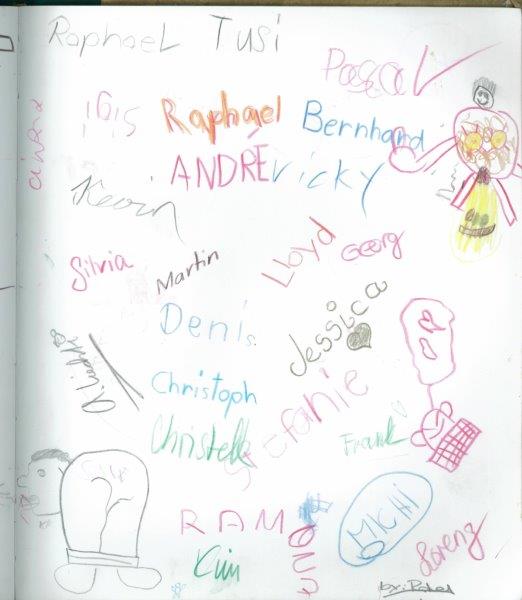 Raphael Tusi
Pascal
Iris
Raphael
Bernhard
ANDRÉ
Vicky
Kevin
Lloyd
Georg
Silvia
Martin
Jessica
Denis
Christoph
Stefanie
Christelle
Frank
RAMONA
MICHI
Kim
Lorenz